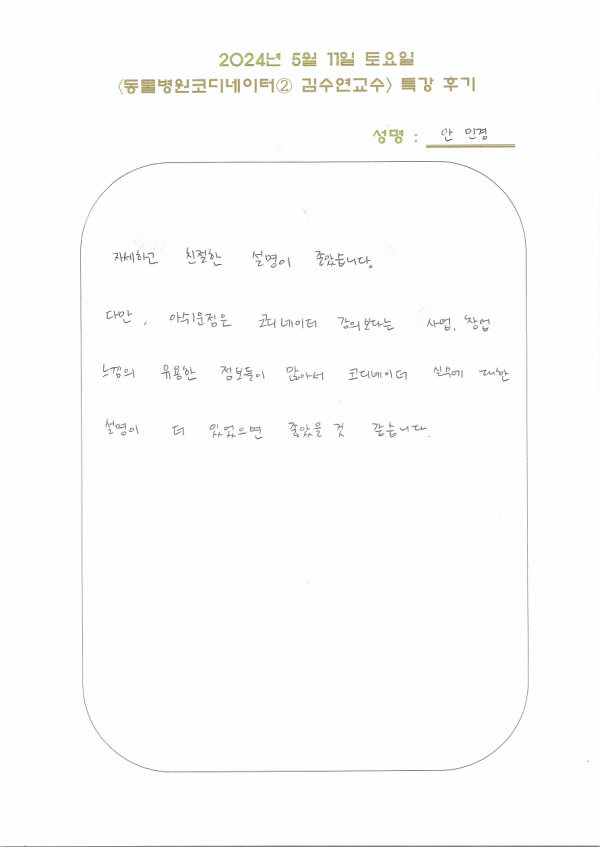 2024년 5월 11일 토요일
<동물병원코디네이터② 김수연교수> 특강 후기
성명 : 안 민경
자세하고 친절한 설명이 좋았습니다.
다만, 아쉬운점은 코디네이터 강의보다는 사업, 창업
느낌의 유용한 정보들이 많아서 코디네이터 실무에 대한
설명이 더 있었으면 좋았을 것 같습니다.